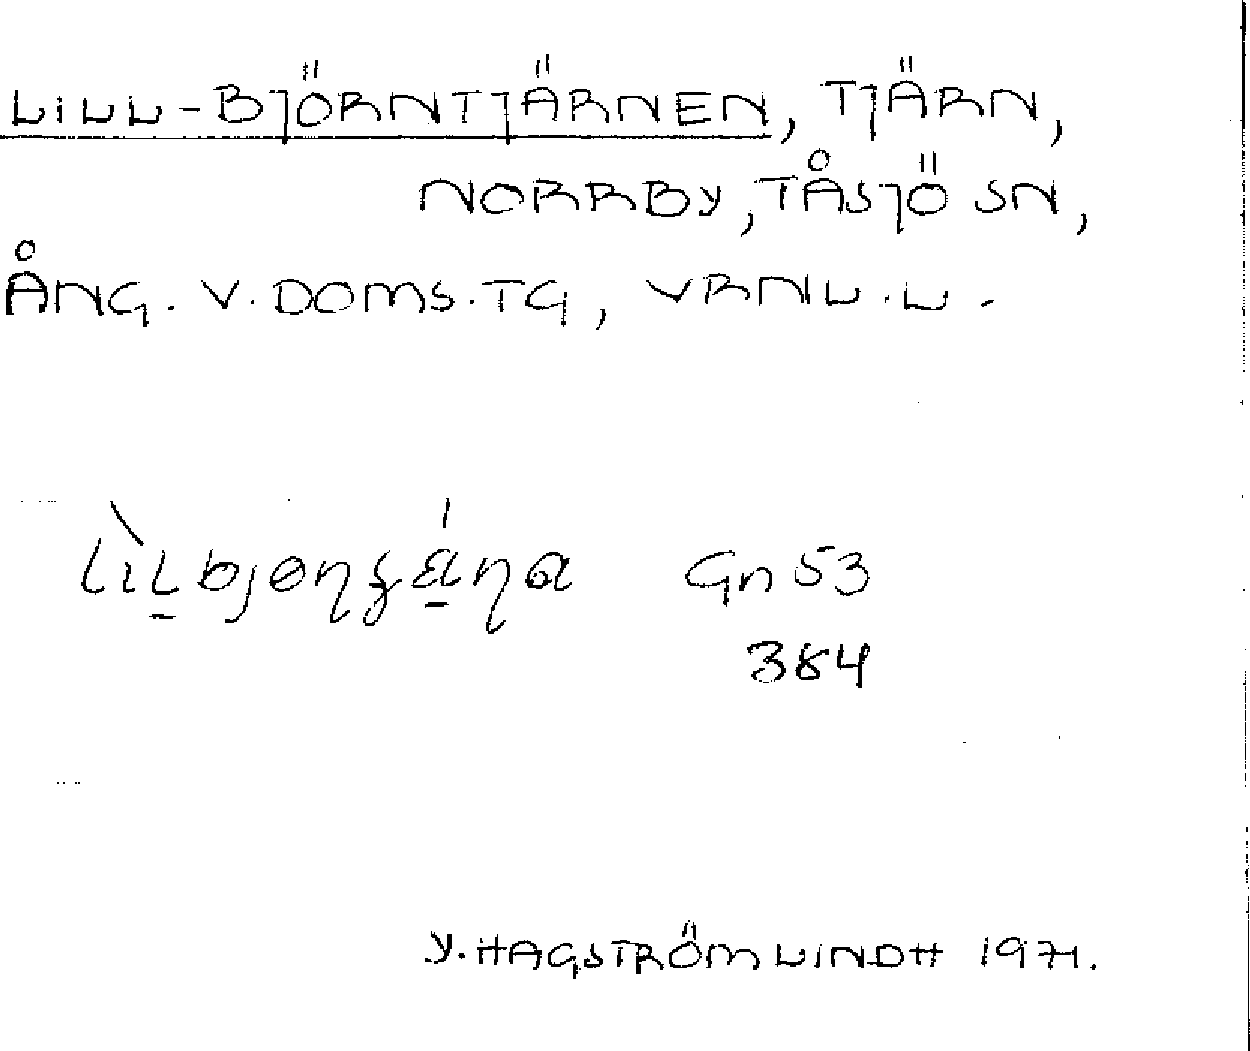 LILL-BJÖRNTJÄRNEN, TJÄRN,
NORRBY, TÅSJÖ SN,
ÅNG. V. DOMS. TG, VRNL. L.
Gn 53
384
Y. HAGSTRÖM LINDH 1971.